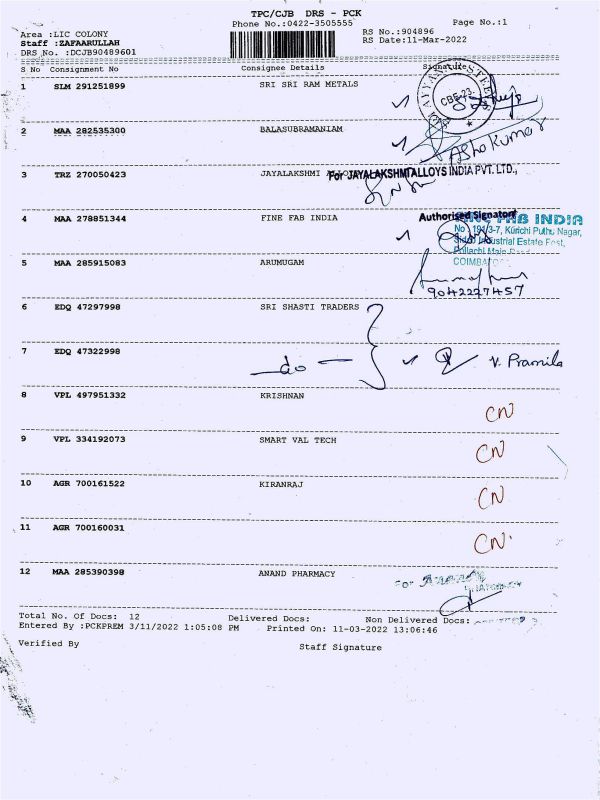 TPC/CJB DRS - PCK
Phone No.:0422-3505555 Page No.:1
Area :LIC COLONY RS No.:904896
Staff :ZAFAARULLAH RS Date:11-Mar-2022
DRS No. :DCJB90489601
S No Consignment No Consignee Details Signature
1 SLM 291251899 SRI SRI RAM METALS
AYYAN STEEL
CBE-23
2 MAA 282535300 BALASUBRAMANIAM
Ashokumar
3 TRZ 270050423 JAYALAKSHMI ALLOYS For JAYALAKSHMI ALLOYS INDIA PVT. LTD.,
4 MAA 278851344 FINE FAB INDIA Authorised Signatory
FINE FAB INDIA
No 191/3-7, Kurichi Puthu Nagar,
Sidco Industrial Estate Post,
Pollachi Main Road
COIMBATO
5 MAA 285915083 ARUMUGAM
9042227457
6 EDQ 47297998 SRI SHASTI TRADERS
7 EDQ 47322998 do V. Pramila
8 VPL 497951332 KRISHNAN CN
9 VPL 334192073 SMART VAL TECH CN
10 AGR 700161522 KIRANRAJ CN
11 AGR 700160031 CN
12 MAA 285390398 ANAND PHARMACY For
Total No. Of Docs: 12 Delivered Docs: Non Delivered Docs:
Entered By :PCKPREM 3/11/2022 1:05:08 PM Printed On: 11-03-2022 13:06:46
Verified By Staff Signature